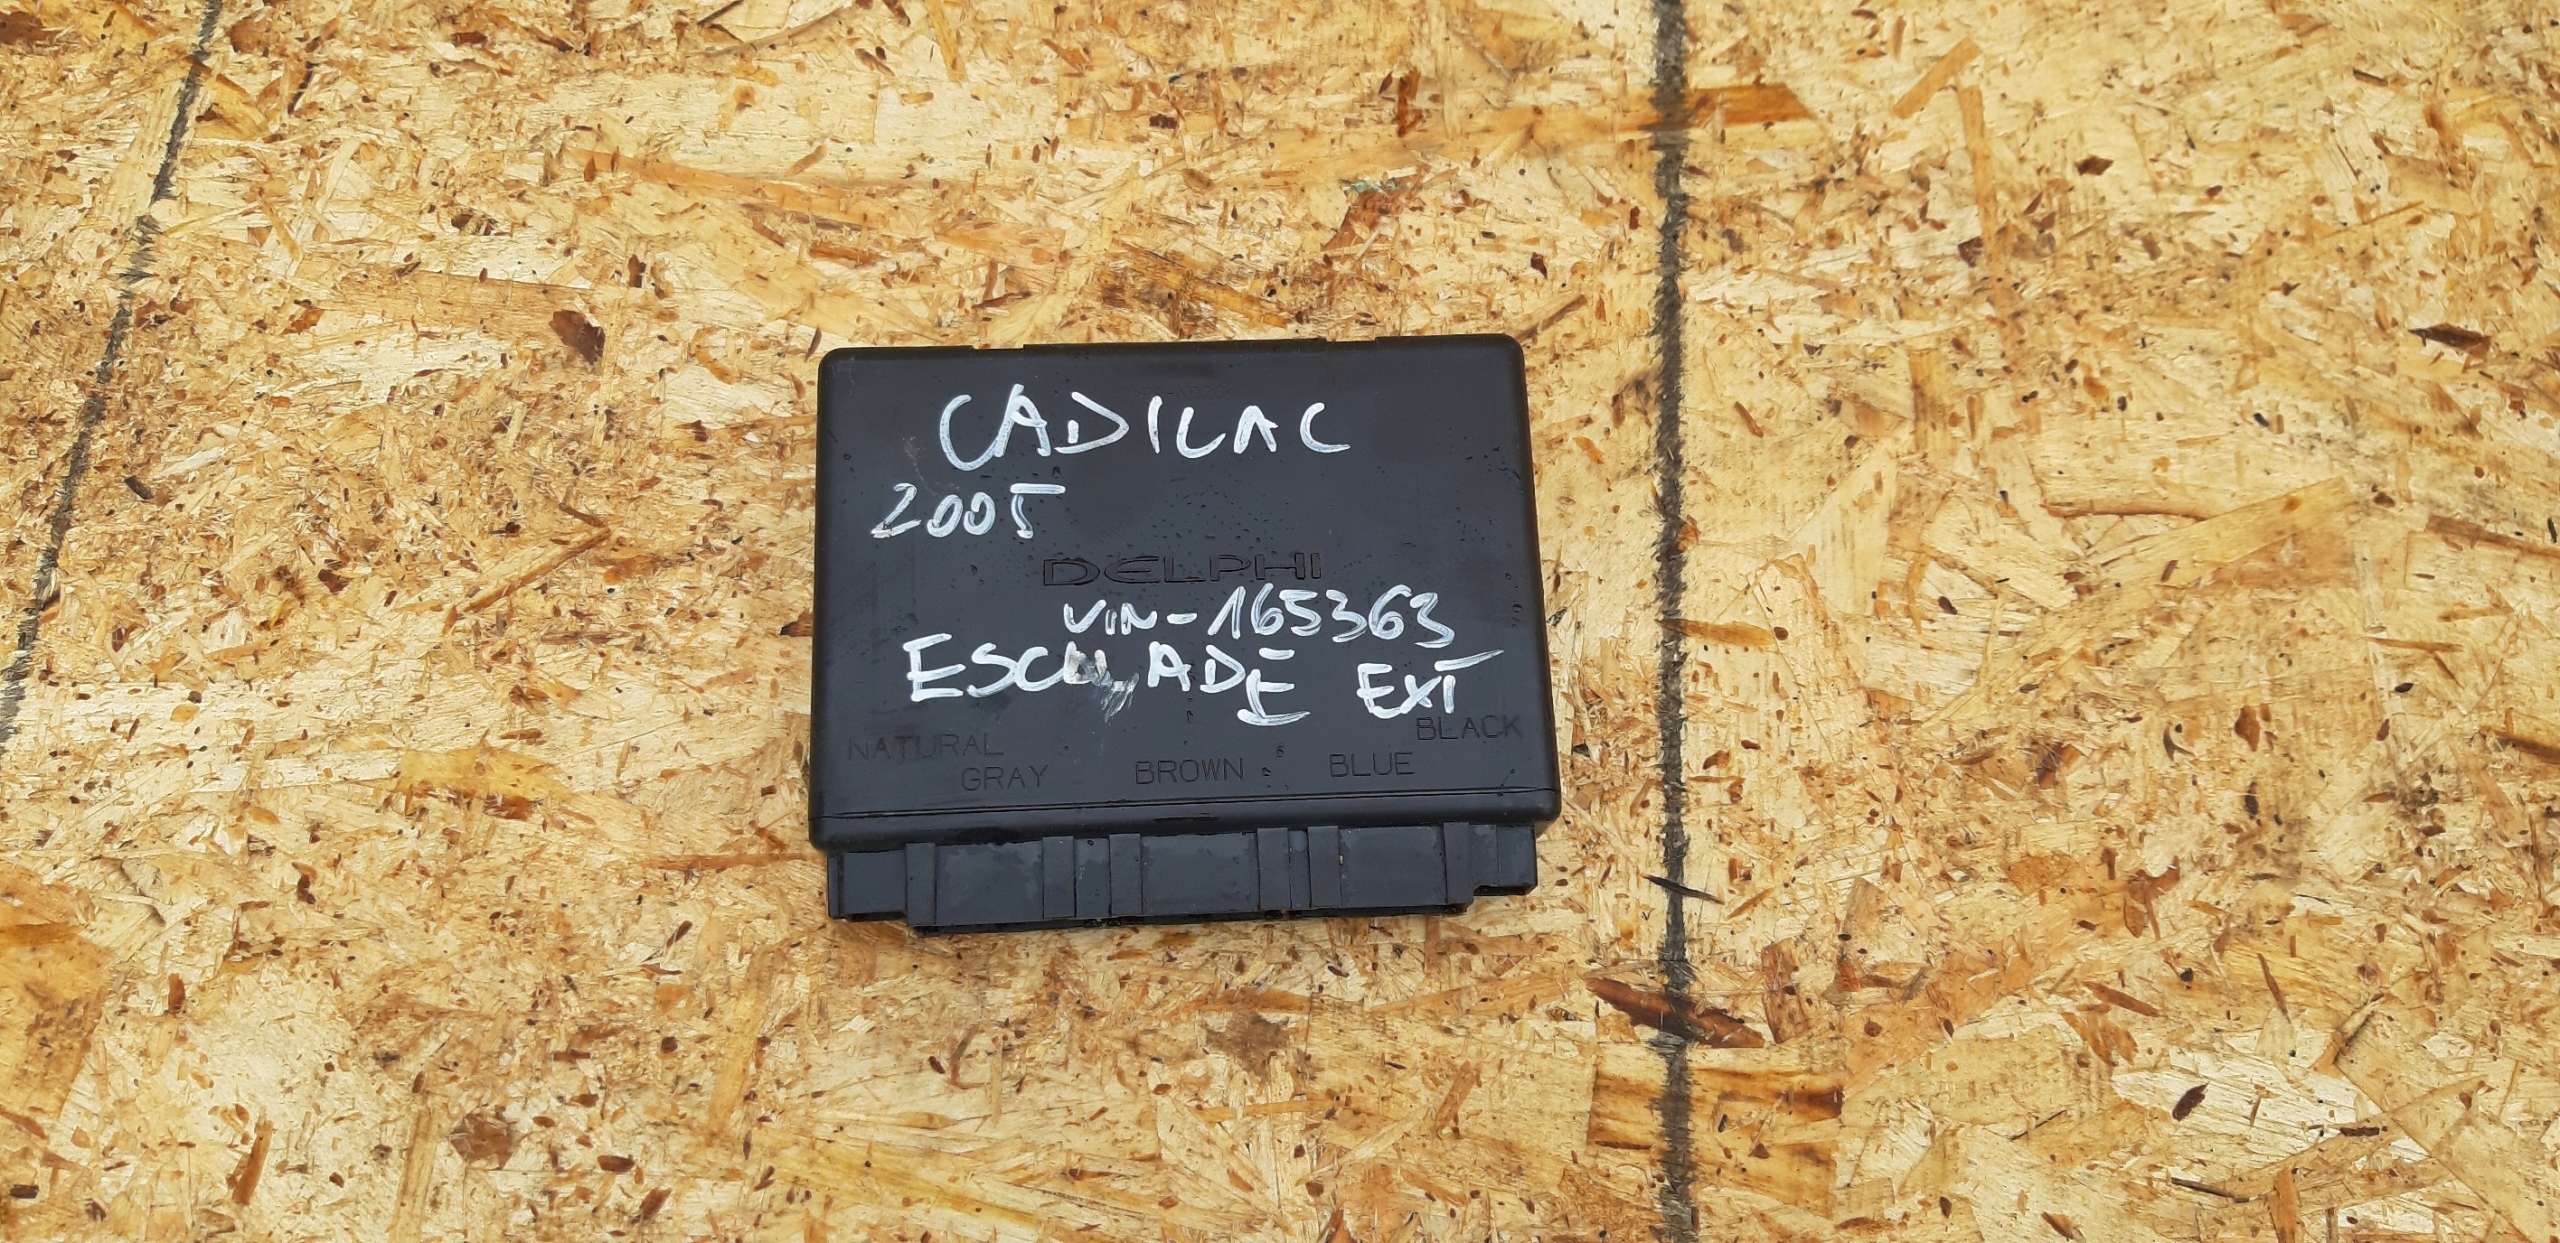 CADILAC
2005
DELPHI
VIN-165363
ESCLADE EXT
NATURAL GRAY BROWN BLUE BLACK